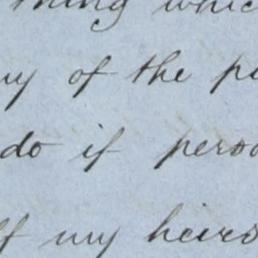 thing whic
ny of the p
do if perso
ff my heirs